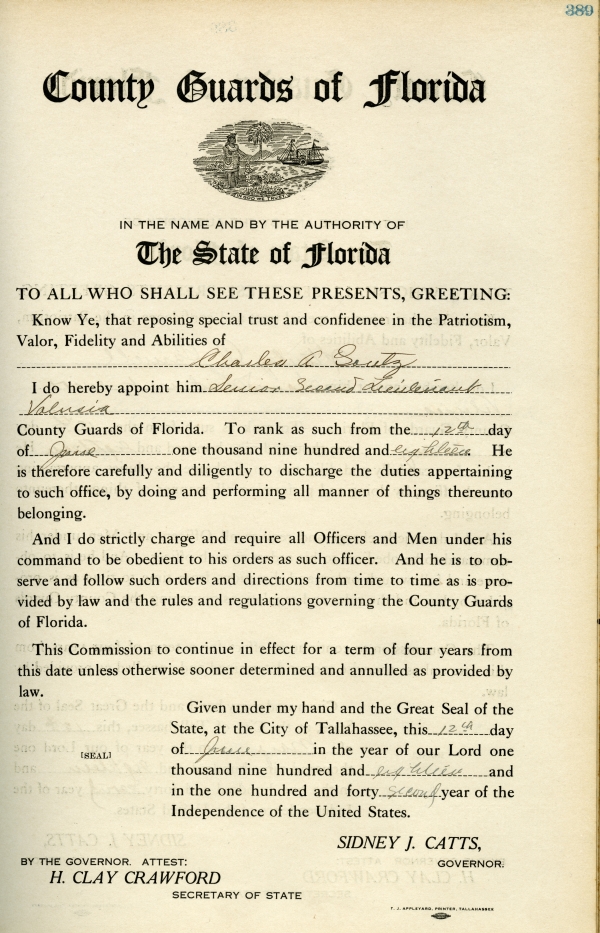 389
County Guards of Florida
IN GOD WE TRUST
IN THE NAME AND BY THE AUTHORITY OF
The State of Florida
TO ALL WHO SHALL SEE THESE PRESENTS, GREETING:
Know Ye, that reposing special trust and confidence in the Patriotism,
Valor, Fidelity and Abilities of
Charles A
I do hereby appoint him Senior Second Lieutenant
Volusia
County Guards of Florida. To rank as such from the 12th day
of June one thousand nine hundred and eighteen He
is therefore carefully and diligently to discharge the duties appertaining
to such office, by doing and performing all manner of things thereunto
belonging.
And I do strictly charge and require all Officers and Men under his
command to be obedient to his orders as such officer. And he is to ob-
serve and follow such orders and directions from time to time as is pro-
vided by law and the rules and regulations governing the County Guards
of Florida.
This Commission to continue in effect for a term of four years from
this date unless otherwise sooner determined and annulled as provided by
law.
Given under my hand and the Great Seal of the
State, at the City of Tallahassee, this 12th day
of June in the year of our Lord one
[SEAL]
thousand nine hundred and eighteen and
in the one hundred and forty second year of the
Independence of the United States.
SIDNEY J. CATTS,
GOVERNOR.
BY THE GOVERNOR. ATTEST:
H. CLAY CRAWFORD
SECRETARY OF STATE
T. J. APPLEYARD, PRINTER, TALLAHASSEE